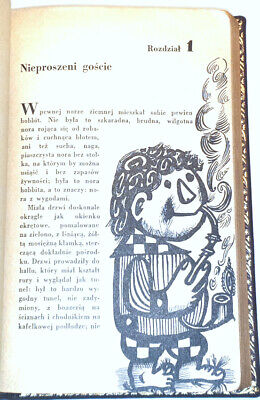 Rozdział 1
Nieproszeni goście
W pewnej norze ziemnej mieszkał sobie pewien
hobbit. Nie była to szkaradna, brudna, wilgotna
nora rojąca się od roba-
ków i cuchnąca błotem,
ani też sucha, naga,
piaszczysta nora bez stoł-
ka, na którym by można
usiąść i bez zapasów
żywności; była to nora
hobbita, a to znaczy: no-
ra z wygodami.
Miała drzwi doskonale
okrągłe jak okienko
okrętowe, pomalowane
na zielono, z lśniącą, żół-
tą mosiężną klamką, ster-
czącą dokładnie pośrod-
ku. Drzwi prowadziły do
hallu, który miał kształt
rury i wyglądał jak tu-
nel: był to bardzo wygo-
dny tunel, nie zady-
miony, z boazerią na
ścianach i chodnikiem na
kafelkowej podłodze, nie